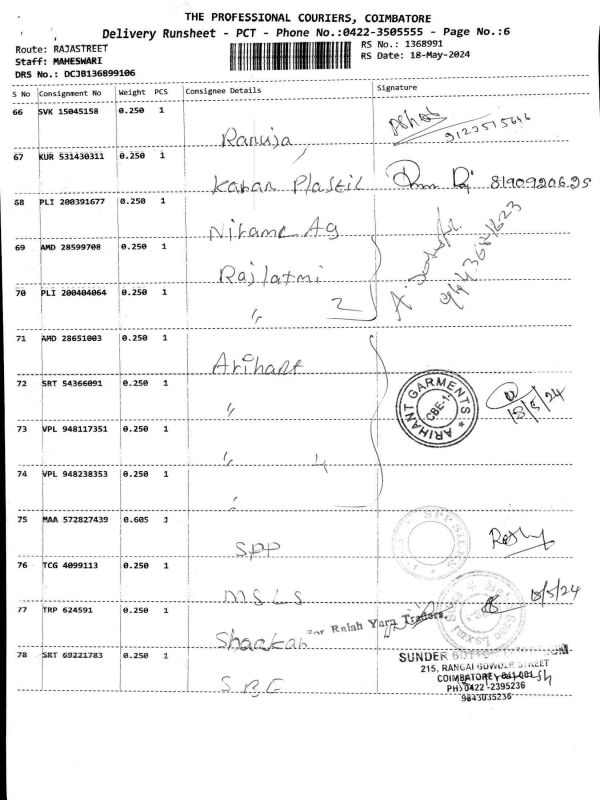 THE PROFESSIONAL COURIERS, COIMBATORE
Delivery Runsheet - PCT - Phone No.:0422-3505555 - Page No.:6
Route: RAJASTREET
RS No.: 1368991
Staff: MAHESWARI
RS Date: 18-May-2024
DRS No.: DCJB136899106
S No Consignment No Weight PCS Consignee Details Signature
66 SVK 15045158 0.250 1
Ranuja
67 KUR 531430311 0.250 1
Karan Plastic 8190920625
68 PLI 200391677 0.250 1
Nirame Ag
69 AMD 28599708 0.250 1
Rajlaxmi
70 PLI 200404064 0.250 1
" 2
71 AMD 28651003 0.250 1
Arihant
72 SRT 54366091 0.250 1
"
ARIHANT GARMENTS
CBE-1
18/5/24
73 VPL 948117351 0.250 1
" 4
74 VPL 948238353 0.250 1
"
75 MAA 572827439 0.605 1
SPP
76 TCG 4099113 0.250 1
MSLS
18/5/24
77 TRP 624591 0.250 1
Shankar
For Rajah Yarn Traders.
78 SRT 69221783 0.250 1
S.B.C
SUNDER
215, RANGAI GOWDER STREET
COIMBATORE - 641 001
PH: 0422 - 2395236
9843035236